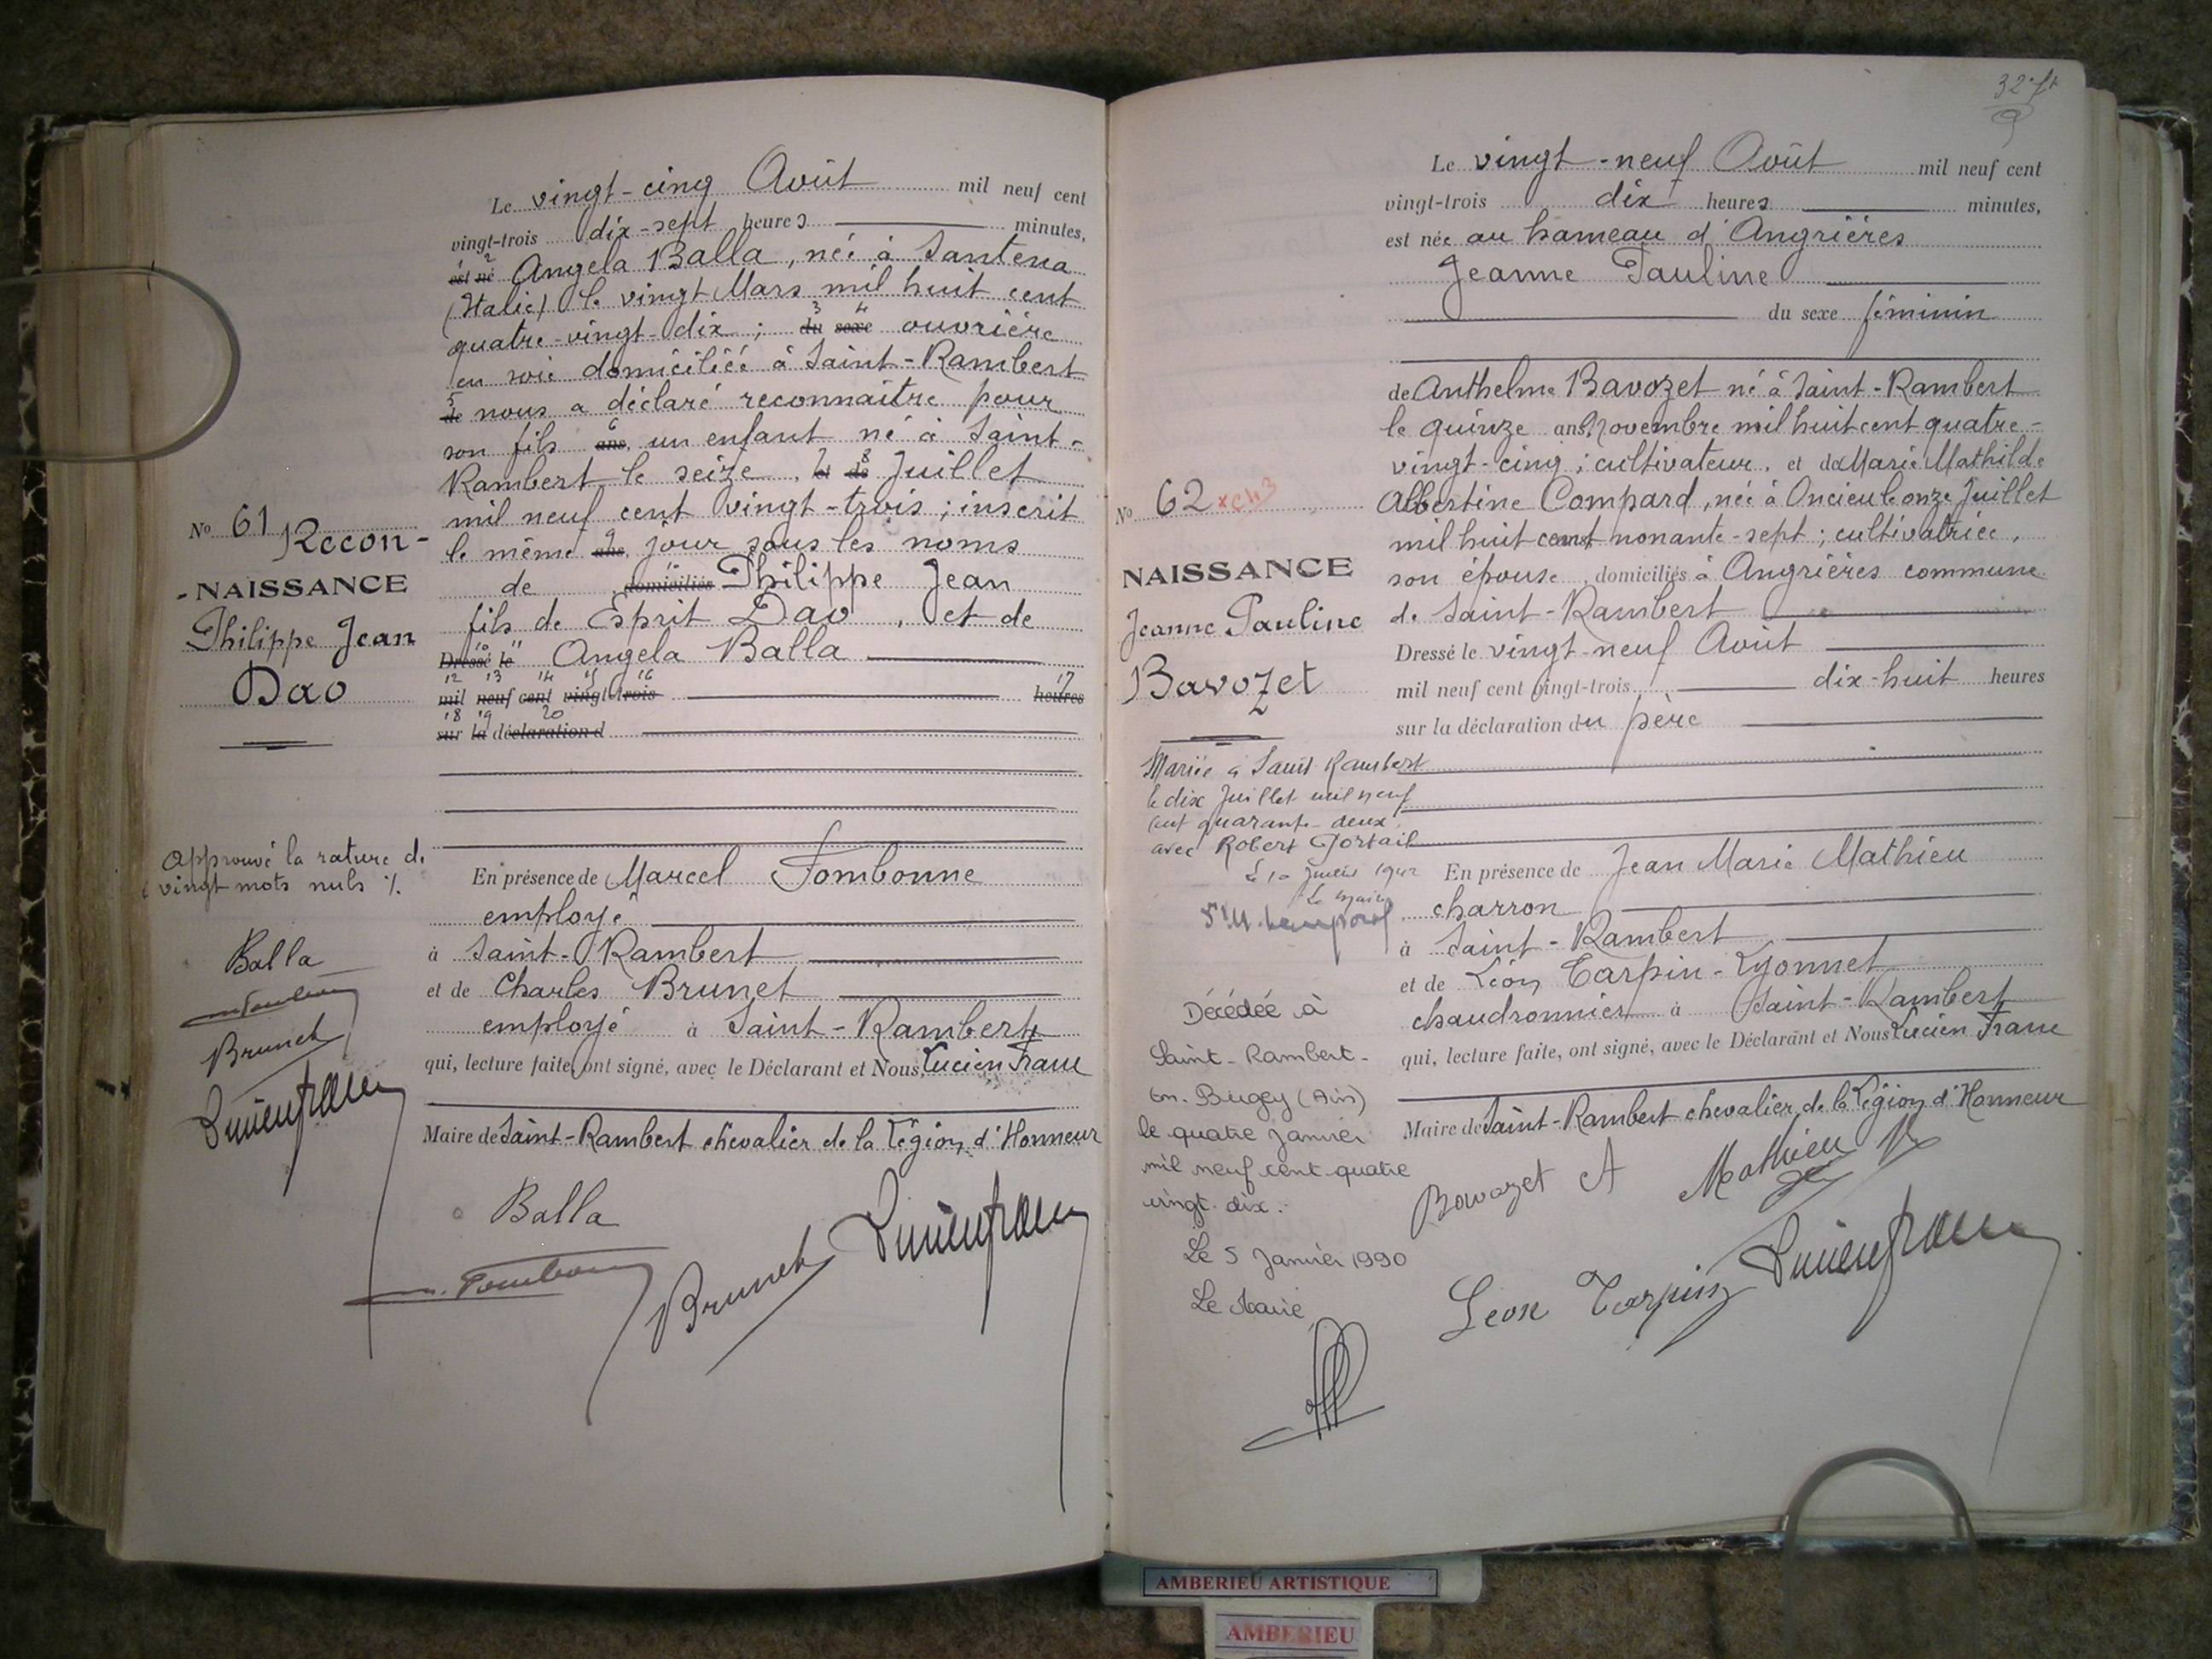 Le vingt-cinq Août mil neuf cent
vingt-trois dix-sept heures minutes,
1 2
est né Angela Balla, née à Santena
(Italie) le vingt Mars mil huit cent
3 4
quatre-vingt-dix ; du sexe ouvrière
en soie domiciliée à Saint-Rambert
5
de nous a déclaré reconnaître pour
6
son fils ans, un enfant né à Saint-
7 8
Rambert le seize, et de Juillet
mil neuf cent vingt-trois ; inscrit
9
le même ans, jour sous les noms
de domiciliés Philippe Jean
fils de Esprit Dao, et de
10 11
Dressé le Angela Balla
12 13 14 15 16 17
mil neuf cent vingt-trois heures
18 19 20
sur la déclaration d
No 61 Recon-
-NAISSANCE
Philippe Jean
Dao
Approuvé la rature de
vingt mots nuls ./.
Balla
Brunet
En présence de Marcel Fombonne
employé
à Saint-Rambert
et de Charles Brunet
employé à Saint-Rambert
qui, lecture faite, ont signé, avec le Déclarant et Nous, Lucien Franc
Maire de Saint-Rambert chevalier de la Légion d'Honneur
Balla
Brunet
32
Le vingt-neuf Août mil neuf cent
vingt-trois dix heures minutes,
est née au hameau d'Angrières
Jeanne Pauline
du sexe féminin
de Anthelme Bavozet né à Saint-Rambert
le quinze ans, novembre mil huit cent quatre-
vingt-cinq ; cultivateur, et de Marie Mathilde
Albertine Compard, née à Oncieu le onze Juillet
mil huit cent nonante-sept ; cultivatrice,
son épouse, domiciliés à Angrières commune
de Saint-Rambert
Dressé le vingt-neuf Août
mil neuf cent vingt-trois dix-huit heures
sur la déclaration du père
No 62
NAISSANCE
Jeanne Pauline
Bavozet
Mariée à Saint Rambert
le dix Juillet mil neuf
cent quarante-deux
avec Robert Portail
Le 10 Juillet 1942
Le Maire
Décédée à
Saint-Rambert-
en-Bugey (Ain)
le quatre janvier
mil neuf cent quatre
vingt dix.
Le 5 Janvier 1990
Le Maire
En présence de Jean Marie Mathieu
charron
à Saint-Rambert
et de Léon Tarpin-Lyonnet
chaudronnier à Saint-Rambert
qui, lecture faite, ont signé, avec le Déclarant et Nous Lucien Franc
Maire de Saint-Rambert chevalier de la Légion d'Honneur
Bavozet A Mathieu
Leon Tarpin
AMBERIEU ARTISTIQUE
AMBERIEU